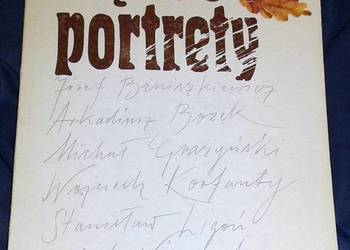 portrety
Józef Biniszkiewicz
Arkadiusz Bożek
Michał Grażyński
Wojciech Korfanty
Stanisław Ligoń